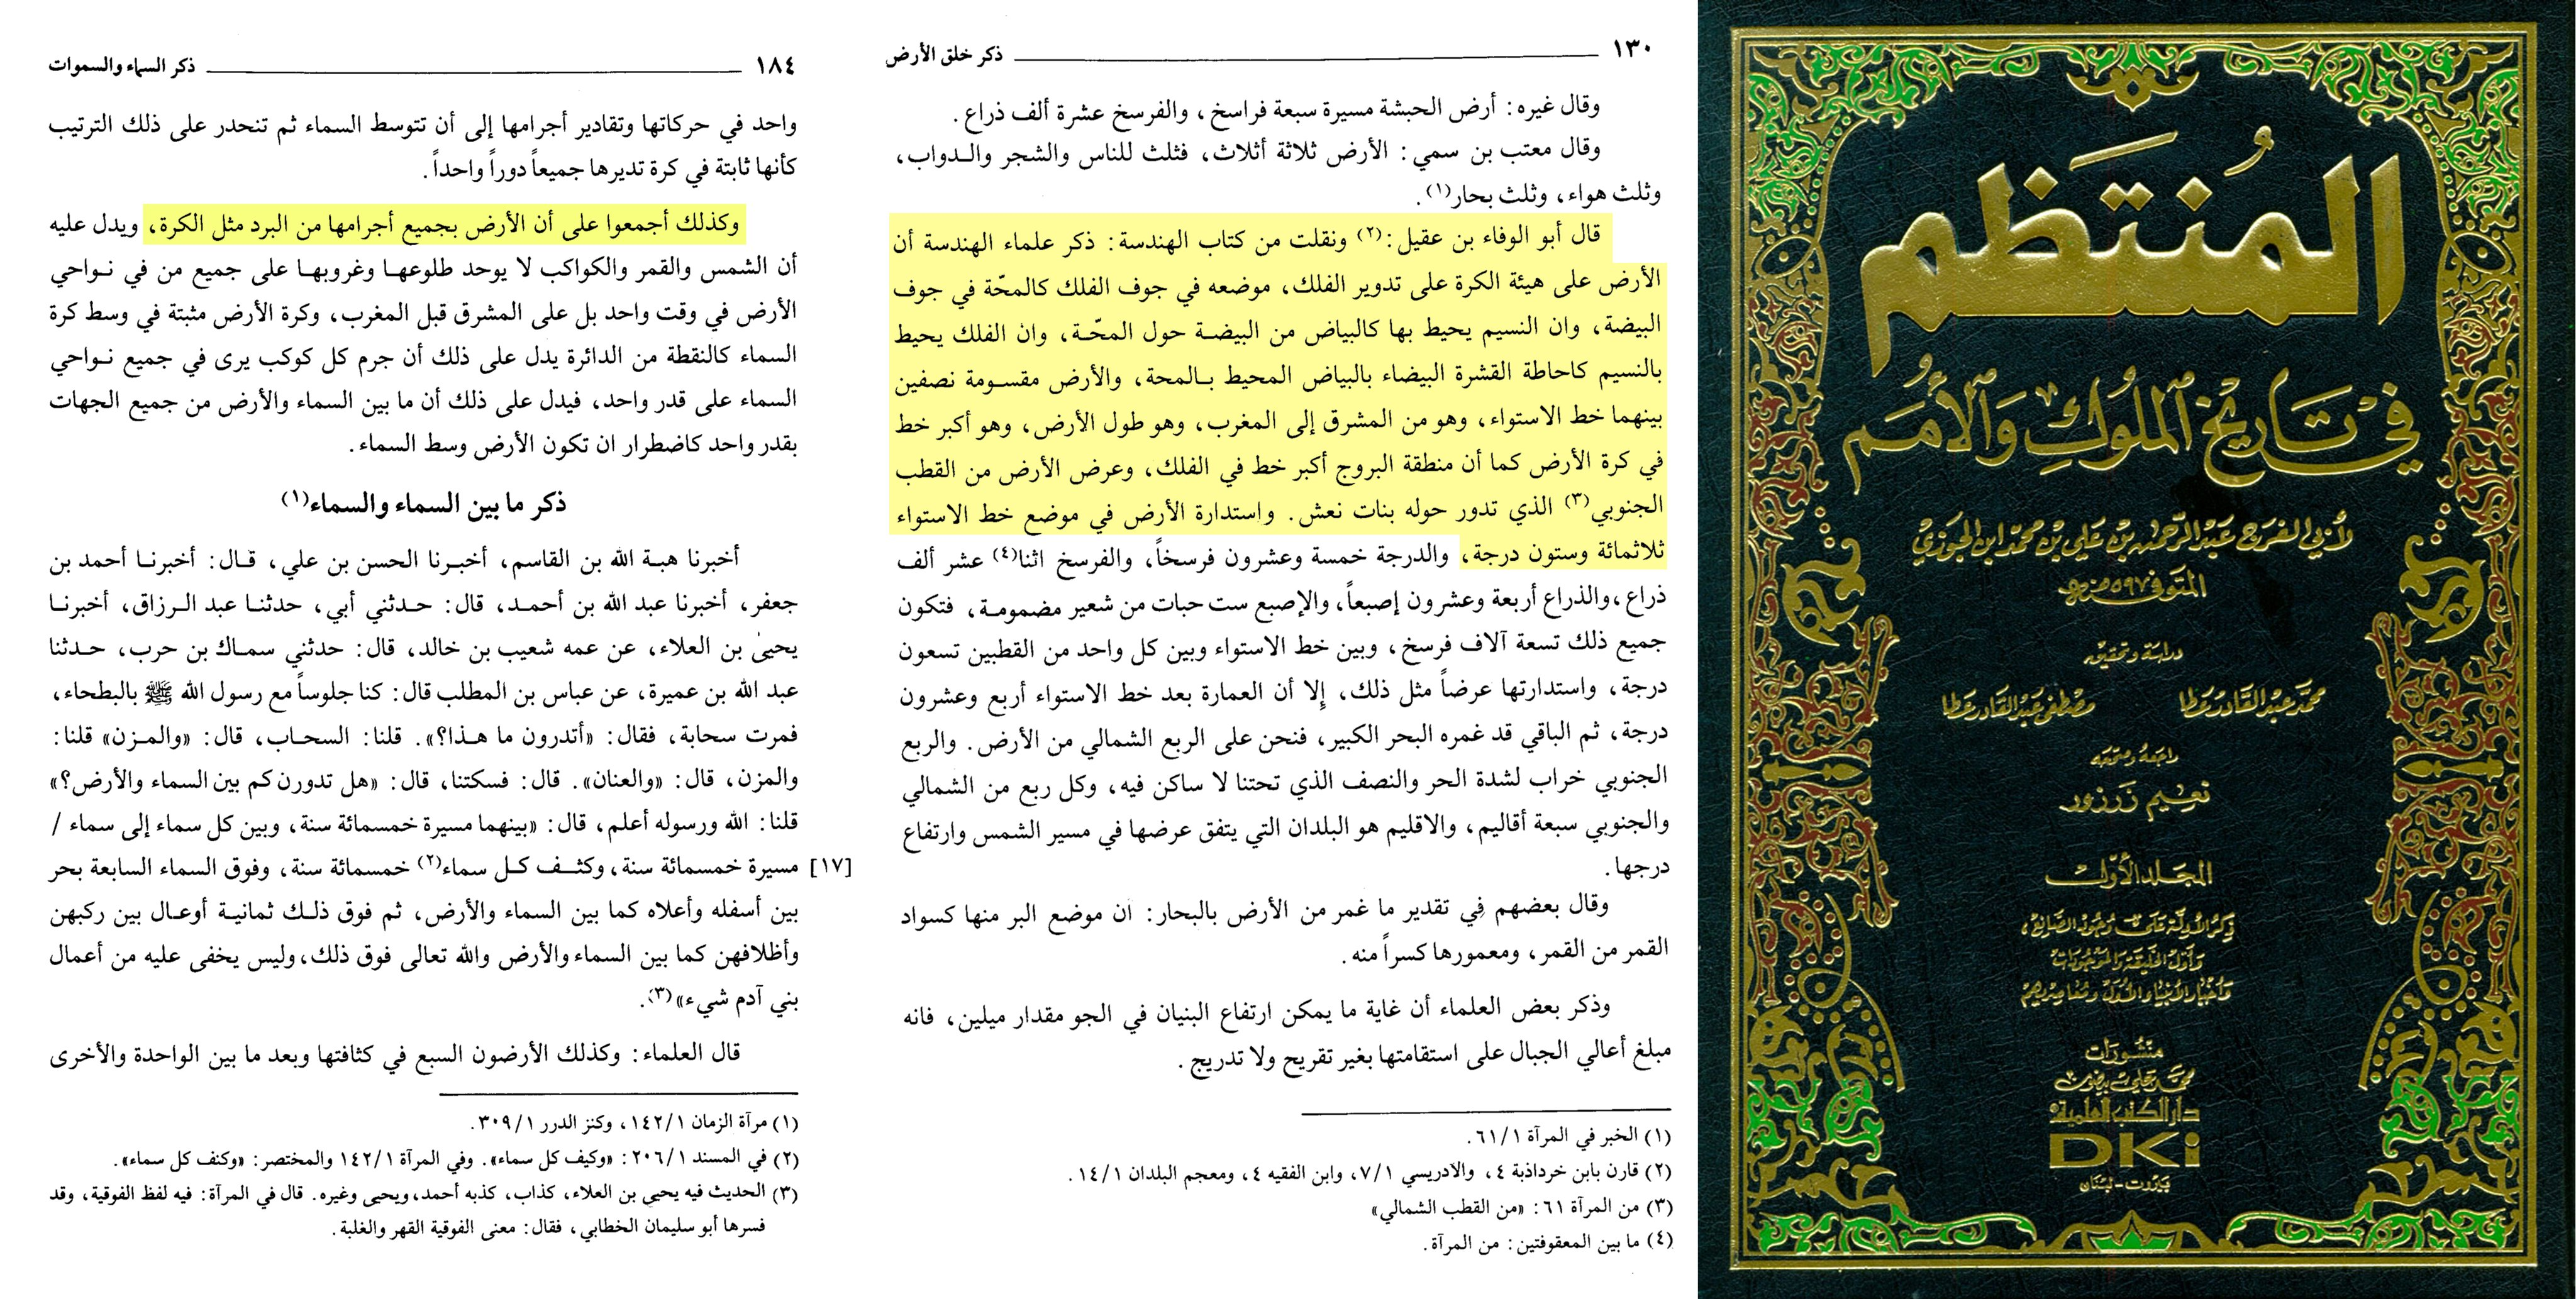 المنتظم
في تاريخ الملوك والأمم
لأبي الفرج عبد الرحمن بن علي بن محمد ابن الجوزي
المتوفى ٥٩٧ هـ
دراسة وتحقيق
محمد عبد القادر عطا
مصطفى عبد القادر عطا
راجعه وصححه
نعيم زرزور
المجلد الأول
ذكر الأدلة على وجود الصانع،
وأول الخليقة والموجودات
وأخبار الأنبياء والدول ومعاصريهم
منشورات
محمد علي بيضون
دار الكتب العلمية
DKi
بيروت - لبنان
١٣٠ ذكر خلق الأرض
وقال غيره: أرض الحبشة مسيرة سبعة فراسخ، والفرسخ عشرة ألف ذراع.
وقال معتب بن سمي: الأرض ثلاثة أثلاث، فثلث للناس والشجر والدواب،
وثلث هواء، وثلث بحار(١).
قال أبو الوفاء بن عقيل:(٢) ونقلت من كتاب الهندسة: ذكر علماء الهندسة أن
الأرض على هيئة الكرة على تدوير الفلك، موضعه في جوف الفلك كالمحّة في جوف
البيضة، وان النسيم يحيط بها كالبياض من البيضة حول المحّة، وان الفلك يحيط
بالنسيم كاحاطة القشرة البيضاء بالبياض المحيط بالمحة، والأرض مقسومة نصفين
بينهما خط الاستواء، وهو من المشرق إلى المغرب، وهو طول الأرض، وهو أكبر خط
في كرة الأرض كما أن منطقة البروج أكبر خط في الفلك، وعرض الأرض من القطب
الجنوبي(٣) الذي تدور حوله بنات نعش. واستدارة الأرض في موضع خط الاستواء
ثلاثمائة وستون درجة، والدرجة خمسة وعشرون فرسخاً، والفرسخ اثنا(٤) عشر ألف
ذراع، والذراع أربعة وعشرون إصبعاً، والإصبع ست حبات من شعير مضمومة، فتكون
جميع ذلك تسعة آلاف فرسخ، وبين خط الاستواء وبين كل واحد من القطبين تسعون
درجة، واستدارتها عرضاً مثل ذلك، إلا أن العمارة بعد خط الاستواء أربع وعشرون
درجة، ثم الباقي قد غمره البحر الكبير، فنحن على الربع الشمالي من الأرض. والربع
الجنوبي خراب لشدة الحر والنصف الذي تحتنا لا ساكن فيه، وكل ربع من الشمالي
والجنوبي سبعة أقاليم، والاقليم هو البلدان التي يتفق عرضها في مسير الشمس وارتفاع
درجها.
وقال بعضهم في تقدير ما غمر من الأرض بالبحار: ان موضع البر منها كسواد
القمر من القمر، ومعمورها كسراً منه.
وذكر بعض العلماء أن غاية ما يمكن ارتفاع البنيان في الجو مقدار ميلين، فانه
مبلغ أعالي الجبال على استقامتها بغير تقريح ولا تدريج.
(١) الخبر في المرآة ٦١/١.
(٢) قارن بابن خرداذبة ٤، والادريسي ٧/١، وابن الفقيه ٤، ومعجم البلدان ١٤/١.
(٣) من المرآة ٦١: «من القطب الشمالي»
(٤) ما بين المعقوفتين: من المرآة.
١٨٤ ذكر السماء والسموات
واحد في حركاتها وتقادير أجرامها إلى أن تتوسط السماء ثم تنحدر على ذلك الترتيب
كأنها ثابتة في كرة تديرها جميعاً دوراً واحداً.
وكذلك أجمعوا على أن الأرض بجميع أجرامها من البرد مثل الكرة، ويدل عليه
أن الشمس والقمر والكواكب لا يوحد طلوعها وغروبها على جميع من في نواحي
الأرض في وقت واحد بل على المشرق قبل المغرب، وكرة الأرض مثبتة في وسط كرة
السماء كالنقطة من الدائرة يدل على ذلك أن جرم كل كوكب يرى في جميع نواحي
السماء على قدر واحد، فيدل على ذلك أن ما بين السماء والأرض من جميع الجهات
بقدر واحد كاضطرار ان تكون الأرض وسط السماء.
ذكر ما بين السماء والسماء(١)
أخبرنا هبة الله بن القاسم، أخبرنا الحسن بن علي، قال: أخبرنا أحمد بن
جعفر، أخبرنا عبد الله بن أحمد، قال: حدثني أبي، حدثنا عبد الرزاق، أخبرنا
يحيى بن العلاء، عن عمه شعيب بن خالد، قال: حدثني سماك بن حرب، حدثنا
عبد الله بن عميرة، عن عباس بن المطلب قال: كنا جلوساً مع رسول الله ﷺ بالبطحاء،
فمرت سحابة، فقال: «أتدرون ما هذا؟». قلنا: السحاب، قال: «والمزن» قلنا:
والمزن، قال: «والعنان». قال: فسكتنا، قال: «هل تدورن كم بين السماء والأرض؟»
قلنا: الله ورسوله أعلم، قال: «بينهما مسيرة خمسمائة سنة، وبين كل سماء إلى سماء /
[١٧] مسيرة خمسمائة سنة، وكثف كل سماء(٢) خمسمائة سنة، وفوق السماء السابعة بحر
بين أسفله وأعلاه كما بين السماء والأرض، ثم فوق ذلك ثمانية أوعال بين ركبهن
وأظلافهن كما بين السماء والأرض والله تعالى فوق ذلك، وليس يخفى عليه من أعمال
بني آدم شيء»(٣).
قال العلماء: وكذلك الأرضون السبع في كثافتها وبعد ما بين الواحدة والأخرى
(١) مرآة الزمان ١٤٢/١، وكنز الدرر ٣٠٩/١.
(٢) في المسند ٢٠٦/١: «وكيف كل سماء». وفي المرآة ١٤٢/١ والمختصر: «وكنف كل سماء».
(٣) الحديث فيه يحيى بن العلاء، كذاب، كذبه أحمد، ويحيى وغيره. قال في المرآة: فيه لفظ الفوقية، وقد
فسرها أبو سليمان الخطابي، فقال: معنى الفوقية القهر والغلبة.